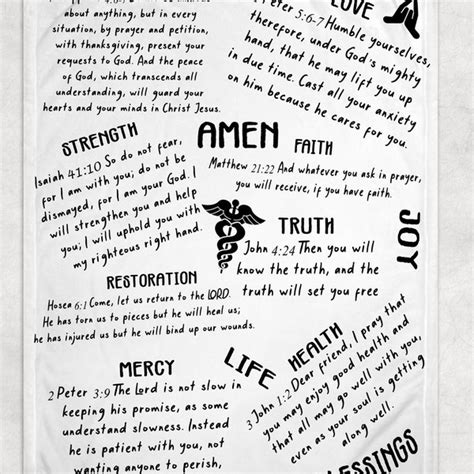 about anything, but in every
situation, by prayer and petition,
with thanksgiving, present your
requests to God. And the peace
of God, which transcends all
understanding, will guard your
hearts and your minds in Christ Jesus.
LOVE
Peter 5:6-7 Humble yourselves,
therefore, under God's mighty
hand, that he may lift you up
in due time. Cast all your anxiety
on him because he cares for you.
STRENGTH
Isaiah 41:10 So do not fear,
for I am with you; do not be
dismayed, for I am your God. I
will strengthen you and help
you; I will uphold you with
my righteous right hand.
AMEN
FAITH
Matthew 21:22 And whatever you ask in prayer,
you will receive, if you have faith.
TRUTH
John 4:24 Then you will
know the truth, and the
truth will set you free
JOY
RESTORATION
Hosea 6:1 Come, let us return to the LORD.
He has torn us to pieces but he will heal us;
he has injured us but he will bind up our wounds.
MERCY
2 Peter 3:9 The Lord is not slow in
keeping his promise, as some
understand slowness. Instead
he is patient with you, not
wanting anyone to perish,
LIFE
HEALTH
3 John 1:2 Dear friend, I pray that
you may enjoy good health and
that all may go well with you,
even as your soul is getting
along well.
LESSINGS